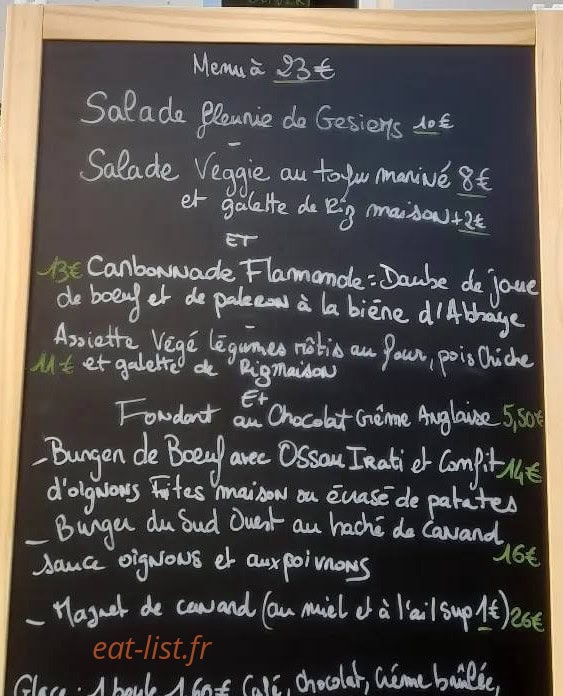 Menu à 23€
Salade fleurie de Gesiers 10€
-
Salade Veggie au tofu mariné 8€
et galette de Riz maison +2€
ET
13€ Carbonnade Flamande = Daube de joue
de boeuf et de paleron à la bière d'Abbaye
-
Assiette Végé légumes rôtis au four, pois Chiche
11€ et galette de Riz maison
Et
Fondant au Chocolat Crème Anglaise 5,50€
- Burger de Boeuf avec Ossau Irati et Confit 14€
d'oignons Frites maison ou écrasé de patates
- Burger du Sud Ouest au haché de Canard
sauce oignons et aux poivrons 16€
- Magret de canard (au miel et à l'ail sup 1€) 26€
eat-list.fr
Glace : 1 boule 1,60€ Café, chocolat, Crème brûlée,